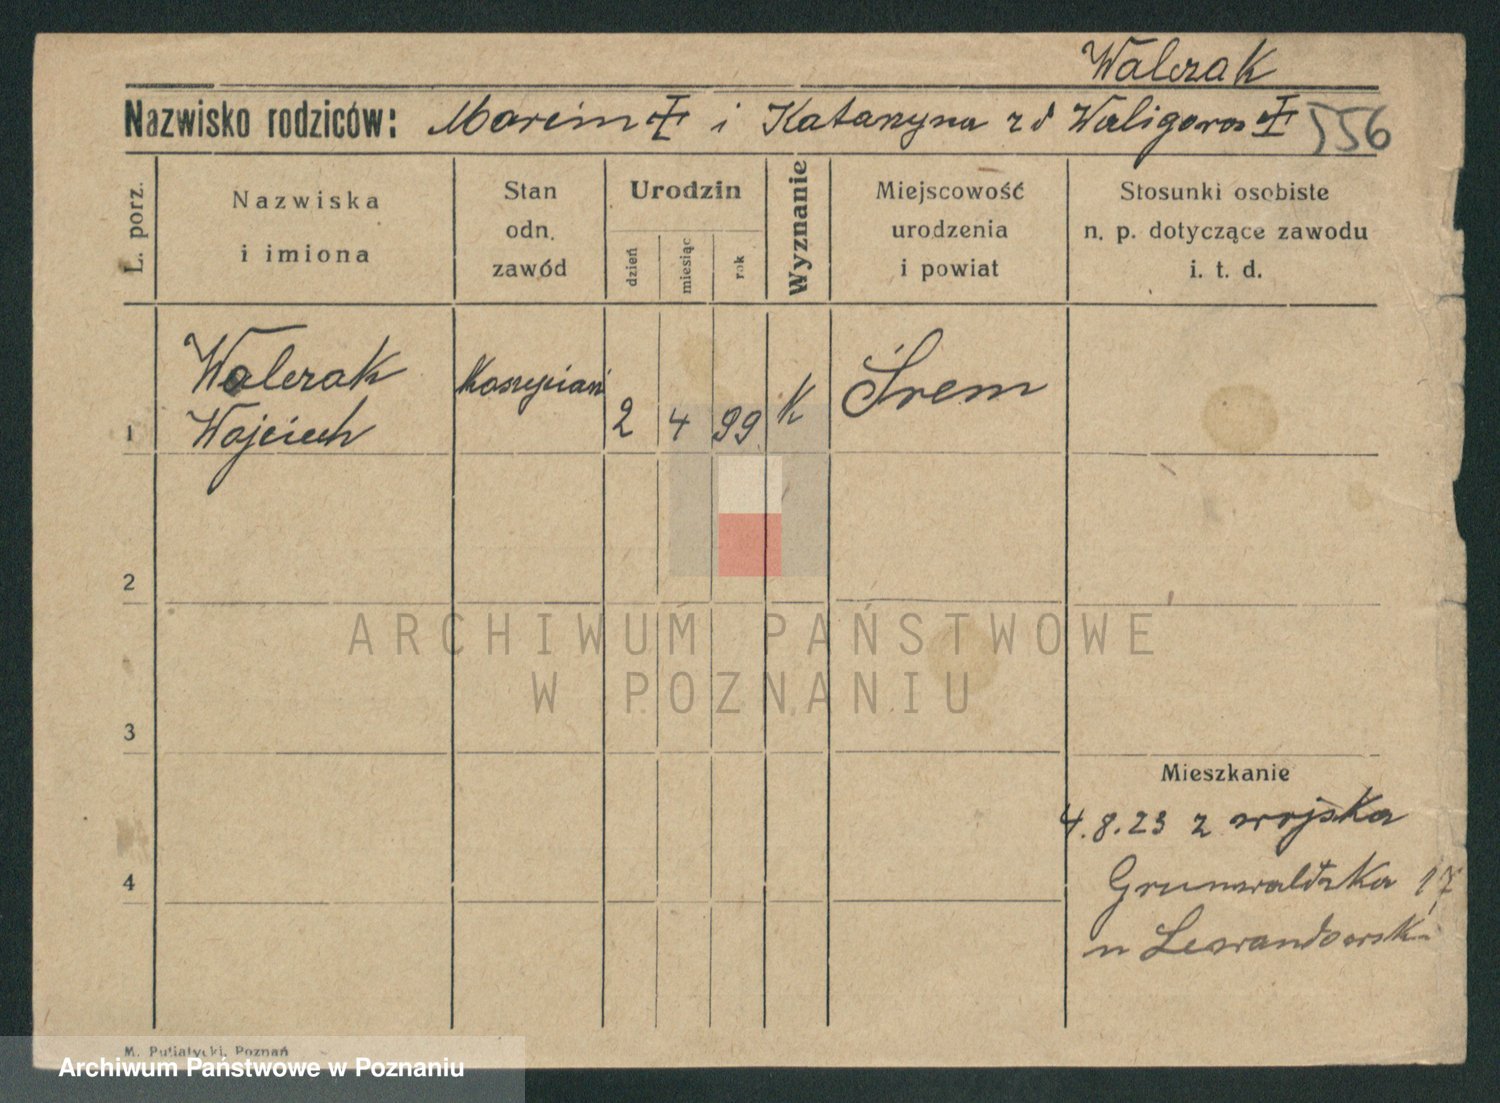 Walczak
Nazwisko rodziców: Marcin i Katarzyna z d Waligora 556
L. porz.
Nazwiska
i imiona
Stan
odn.
zawód
Urodzin
dzień
miesiąc
rok
Wyznanie
Miejscowość
urodzenia
i powiat
Stosunki osobiste
n. p. dotyczące zawodu
i. t. d.
1
Walczak
Wojciech
2 4 99 K Śrem
2
3
4
Mieszkanie
4.8.23 z wojska
Grunwaldzka 17
u Lewandowski
ARCHIWUM PAŃSTWOWE
W POZNANIU
M. Putiatycki, Poznań
Archiwum Państwowe w Poznaniu